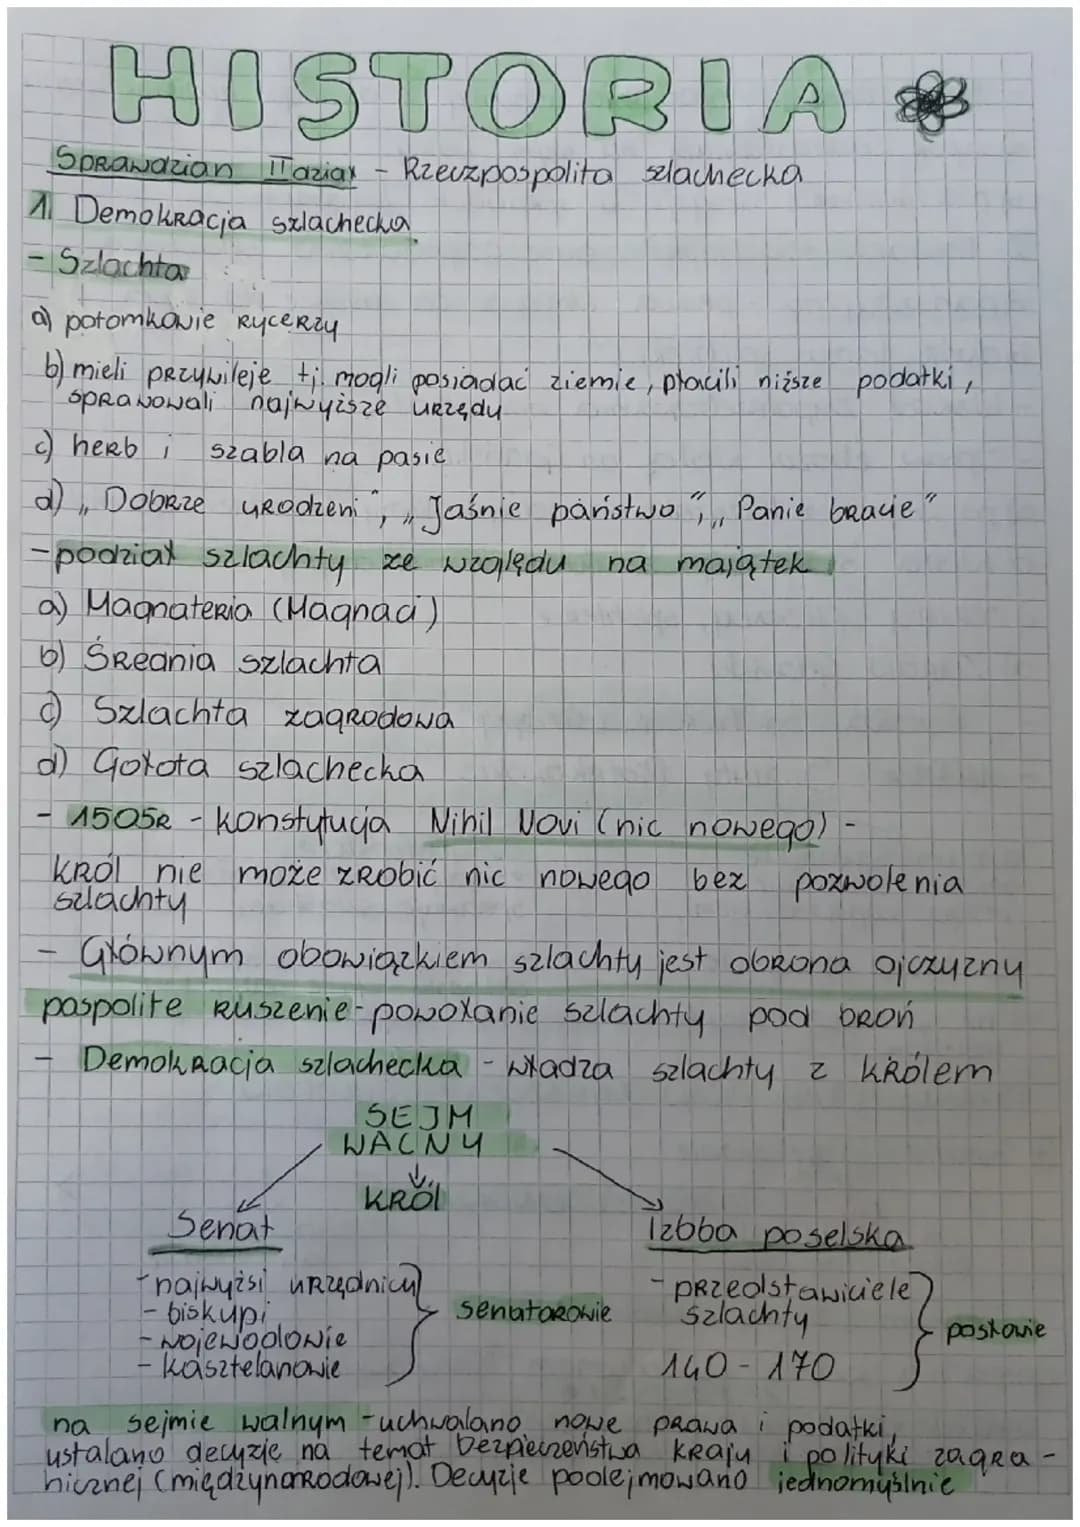 HISTORIA
Sprawdzian II dział - Rzeczpospolita szlachecka
1. Demokracja szlachecka
- Szlachta
a) potomkowie rycerzy
b) mieli przywileje tj. mogli posiadać ziemie, płacili niższe podatki,
sprawowali najwyższe urzędy
c) herb i szabla na pasie
d) „Dobrze urodzeni", „Jaśnie państwo", „Panie bracie"
- podział szlachty ze względu na majątek
a) Magnateria (Magnaci)
b) Średnia szlachta
c) Szlachta zagrodowa
d) Gołota szlachecka
- 1505r - konstytucja Nihil Novi (nic nowego) -
król nie może zrobić nic nowego bez pozwolenia
szlachty
- Głównym obowiązkiem szlachty jest obrona ojczyzny
pospolite ruszenie - powołanie szlachty pod broń
- Demokracja szlachecka - władza szlachty z królem
SEJM
WALNY
KRÓl
Senat
Izbba poselska
- najwyżsi urzędnicy
- biskupi
- wojewodowie
- kasztelanowie
senatorowie
- przedstawiciele
szlachty
140 - 170
posłowie
na sejmie walnym - uchwalano nowe prawa i podatki,
ustalano decyzje na temat bezpieczeństwa kraju i polityki zagra-
nicznej (międzynarodowej). Decyzje podejmowano jednomyślnie